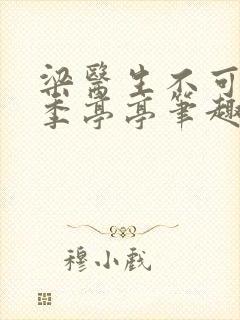 梁醫生不可
季亭亭筆趣
穆小戲